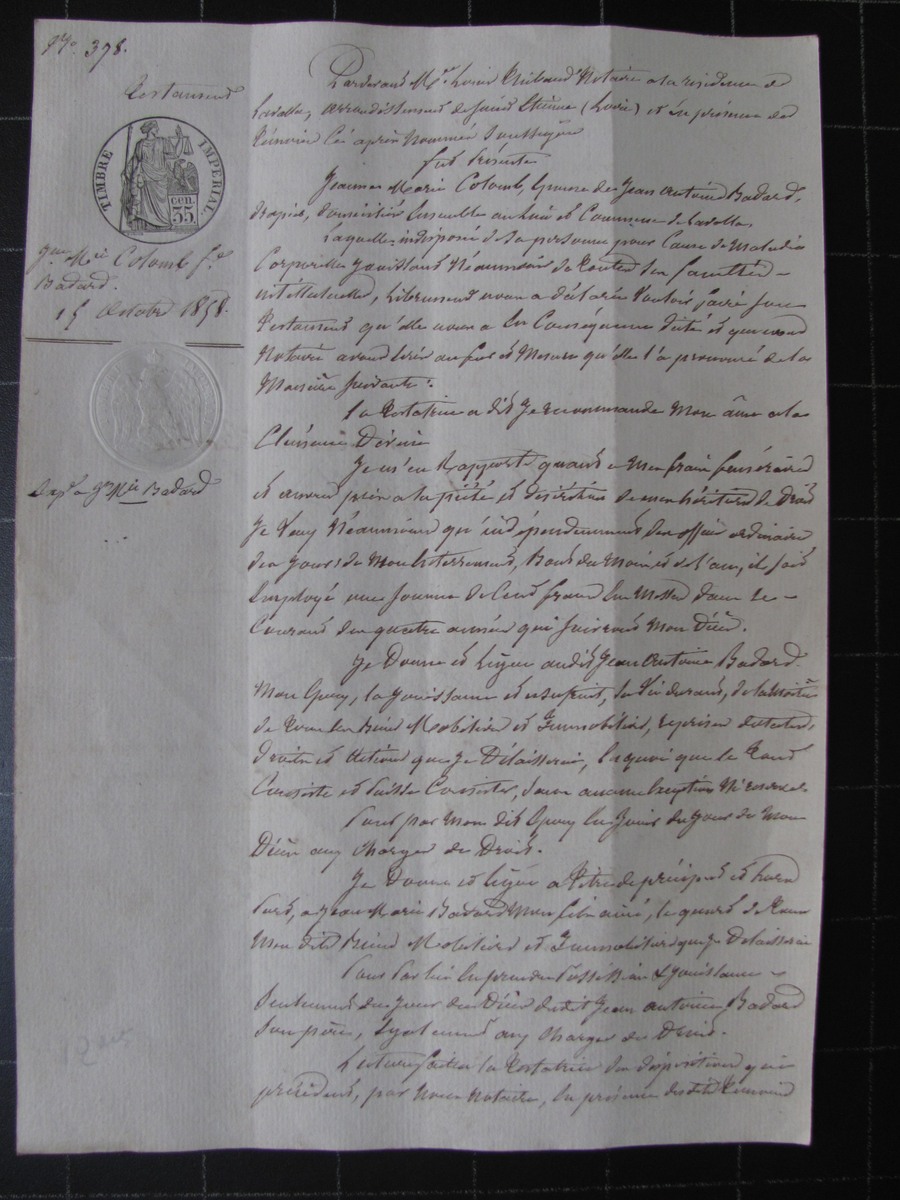 No. 398.
Testament
TIMBRE IMPERIAL
35 cen.
Jne Mie Colomb fe
Badard.
15 Octobre 1858.
Exp. a Jn Mie Badard
Pardevant Me Louis Thibaud Notaire a la residence de
Lavalla, arrondissement de Saint Etienne (Loire) et en présence des
témoins ci après nommés Soussignés
fut Présente
Jeanne Marie Colomb, Epouse de Jean Antoine Badard,
domiciliés Ensemble au lieu et Commune de Lavalla,
Laquelle indisposée de Sa personne pour Cause de Maladie
Corporelle Jouissant Néanmoins de Toutes Ses facultés
intellectuelles, librement nous a déclaré Vouloir faire Son
Testament qu'elle nous a En Conséquence dicté et que nous
Notaire avons écrit au fur et Mesure qu'elle l'a prononcé de la
Manière Suivante :
La Testatrice a dit Je recommande Mon âme a la
Clémence Divine
Je m'en Rapporte quant a Mes frais funéraires
et œuvres pies a la piété et discrétion de mes héritiers de Droit
Je Veux Néanmoins qu'indépendamment des offices ordinaires
des jours de Mon Enterrement, Bout du Mois et de l'an, il soit
Employé une Somme de Cent francs En Messes dans le
Courant des quatre années qui Suivront Mon Décès.
Je Donne et Lègue audit Jean Antoine Badard
Mon Epoux, la Jouissance et usufruit, Sa Vie durant, de la Moitié
de Tous les biens Mobiliers et Immobiliers, reprises dotales,
Droits et Actions que Je Délaisserai, En quoi que le Tout
Consiste et puisse Consister, Sans aucune Exception Ni réserve.
Pour par Mon dit Epoux En Jouir du Jour de Mon
Décès aux Charges de Droit.
Je Donne et Lègue a Titre de préciput et hors
Part, a Jean Marie Badard Mon fils ainé, le quart de Tous
Mes dits biens Mobiliers et Immobiliers que Je Délaisserai
Pour Par lui En prendre Possession & Jouissance
Seulement du Jour du Décès dudit Jean Antoine Badard
Son père, Egalement aux Charges de Droit.
Lecture faite a la Testatrice Des dispositions qui
précèdent, par Nous Notaire, En présence desdits Témoins